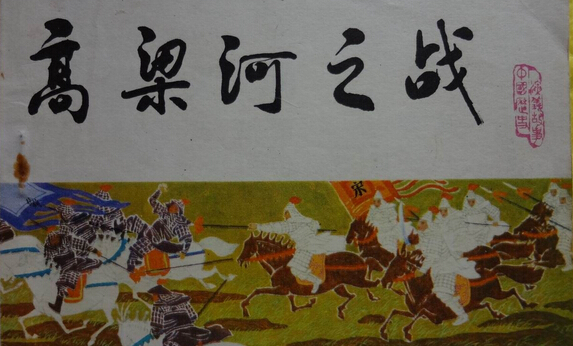 高梁河之战
中国历史
演义故事
宋